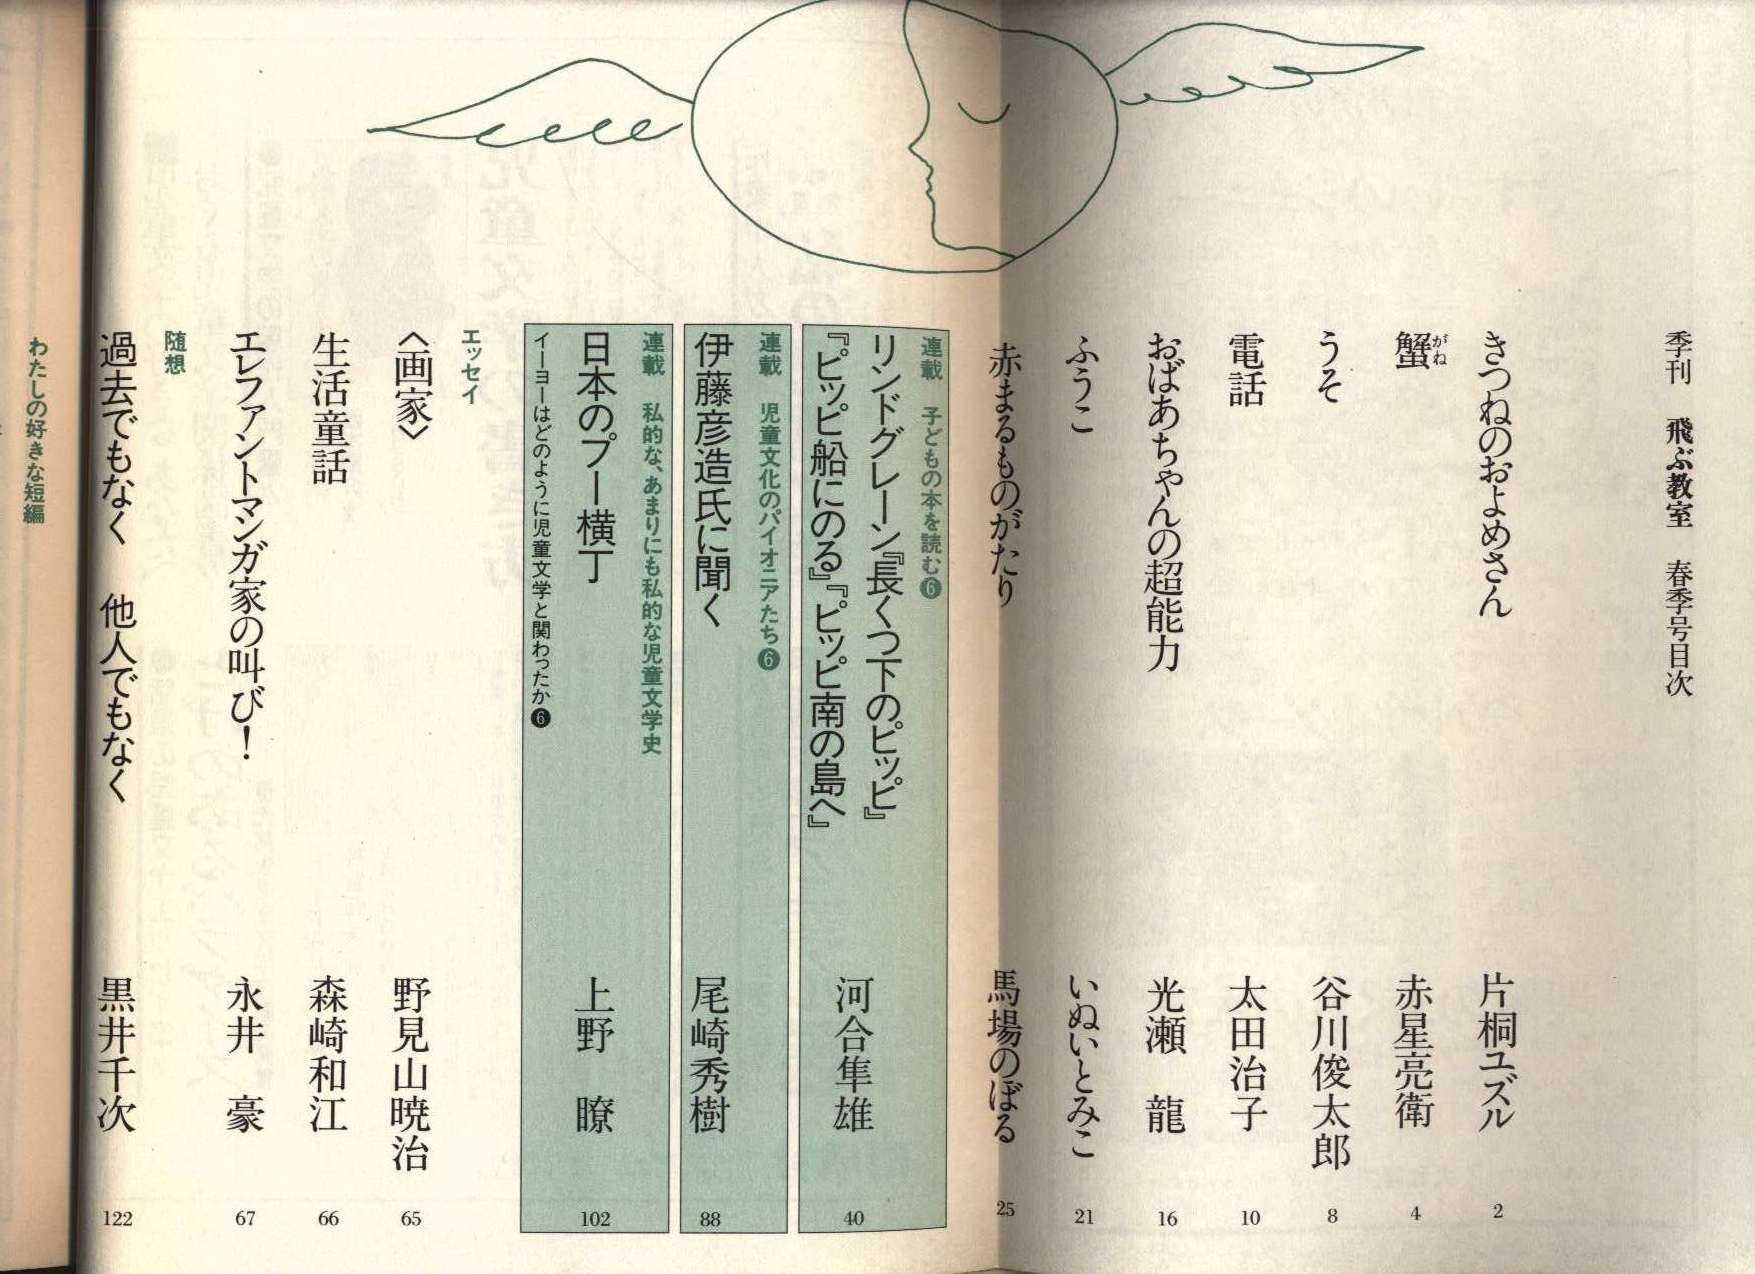 季刊　飛ぶ教室　春季号目次
きつねのおよめさん　片桐ユズル　2
蟹　赤星亮衛　4
がね
うそ　谷川俊太郎　8
電話　太田治子　10
おばあちゃんの超能力　光瀬　龍　16
ふうこ　いぬいとみこ　21
赤まるものがたり　馬場のぼる　25
連載　子どもの本を読む❻
リンドグレーン『長くつ下のピッピ』
『ピッピ船にのる』『ピッピ南の島へ』　河合隼雄　40
連載　児童文化のパイオニアたち❻
伊藤彦造氏に聞く　尾崎秀樹　88
連載　私的な、あまりにも私的な児童文学史
日本のプー横丁　上野　瞭　102
イーヨーはどのように児童文学と関わったか❻
エッセイ
〈画家〉　野見山暁治　65
生活童話　森崎和江　66
エレファントマンガ家の叫び！　永井　豪　67
随想
過去でもなく　他人でもなく　黒井千次　122
わたしの好きな短編